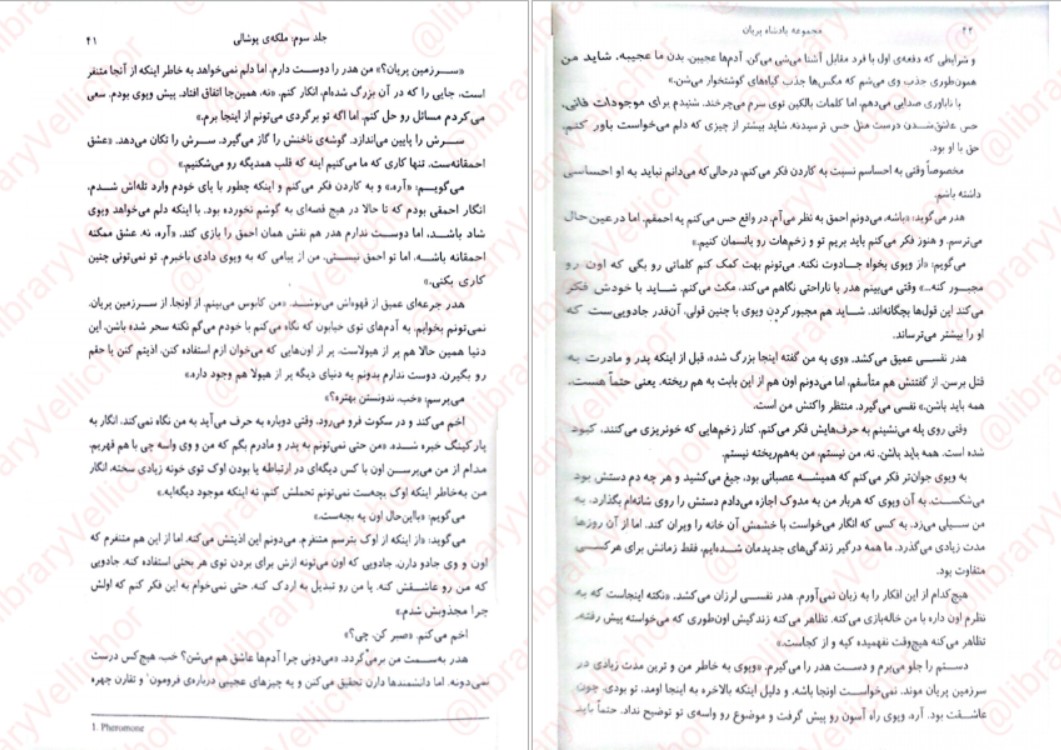 جلد سوم: ملکه‌ی پوشالی
۴۱
«سرزمین پریان؟» من هدر را دوست دارم. اما دلم نمی‌خواهد به خاطر اینکه از آنجا متنفر
است، جایی را که در آن بزرگ شده‌ام، انکار کنم. «نه، همین‌جا اتفاق افتاد. پیش ویوی بودم. سعی
می‌کردم مسائل رو حل کنم. اما اگه تو برگردی می‌تونم از اینجا برم.»
سرش را پایین می‌اندازد. گوشه‌ی ناخنش را گاز می‌گیرد. سرش را تکان می‌دهد. «عشق
احمقانه‌ست. تنها کاری که ما می‌کنیم اینه که قلب همدیگه رو می‌شکنیم.»
می‌گویم: «آره.» و به کاردن فکر می‌کنم و اینکه چطور با پای خودم وارد تله‌اش شدم،
انگار احمقی بودم که تا حالا در هیچ قصه‌ای به گوشم نخورده بود. با اینکه دلم می‌خواهد ویوی
شاد باشد، اما دوست ندارم هدر هم نقش همان احمق را بازی کند. «آره، نه. عشق ممکنه
احمقانه باشه. اما تو احمق نیستی. من از پیامی که به ویوی دادی باخبرم. تو نمی‌تونی چنین
کاری بکنی.»
هدر جرعه‌ای عمیق از قهوه‌اش می‌نوشد. «من کابوس می‌بینم. از اونجا. از سرزمین پریان.
نمی‌تونم بخوابم. به آدم‌های توی خیابون که نگاه می‌کنم با خودم می‌گم نکنه سحر شده باشن. این
دنیا همین حالا هم پر از هیولاست، پر از اون‌هایی که می‌خوان ازم استفاده کنن، اذیتم کنن یا حقم
رو بگیرن. دوست ندارم بدونم یه دنیای دیگه پر از هیولا هم وجود داره.»
می‌پرسم: «خب، ندونستن بهتره؟»
اخم می‌کند و در سکوت فرو می‌رود. وقتی دوباره به حرف می‌آید به من نگاه نمی‌کند. انگار به
پارکینگ خیره شده. «من حتی نمی‌تونم به پدر و مادرم بگم که من و وی واسه چی با هم قهریم.
مدام از من می‌پرسن اون با کس دیگه‌ای در ارتباطه یا بودن اوک توی خونه زیادی سخته. انگار
من به‌خاطر اینکه اوک بچه‌ست نمی‌تونم تحملش کنم، نه اینکه موجود دیگه‌ایه.»
می‌گویم: «بااین‌حال اون یه بچه‌ست.»
می‌گوید: «از اینکه از اوک بترسم متنفرم. می‌دونم این اذیتش می‌کنه. اما از این هم متنفرم که
اون و وی جادو دارن. جادویی که اون می‌تونه ازش برای بردن توی هر بحثی استفاده کنه. جادویی
که من رو عاشقش کنه. یا من رو تبدیل به اردک کنه. حتی نمی‌خوام به این فکر کنم که اولش
چرا مجذوبش شدم.»
اخم می‌کنم. «صبر کن. چی؟»
هدر به‌سمت من برمی‌گردد. «می‌دونی چرا آدم‌ها عاشق هم می‌شن؟ خب، هیچ‌کس درست
نمی‌دونه. اما دانشمندها دارن تحقیق می‌کنن و یه چیزهای عجیبی درباره‌ی فرومون¹ و تقارن چهره
1. Pheromone
۴۲
مجموعه پادشاه پریان
و شرایطی که دفعه‌ی اول با فرد مقابل آشنا می‌شی می‌گن. آدم‌ها عجیبن. بدن ما عجیبه. شاید من
همون‌طوری جذب وی می‌شم که مگس‌ها جذب گیاه‌های گوشتخوار می‌شن.»
با ناباوری صدایی می‌دهم. اما کلمات بالکین توی سرم می‌چرخند. شنیدم برای موجودات فانی،
حس عاشق‌شدن درست مثل حس ترسیدنه. شاید بیشتر از چیزی که دلم می‌خواست باور کنم،
حق با او بود.
مخصوصاً وقتی به احساسم نسبت به کاردن فکر می‌کنم، درحالی‌که می‌دانم نباید به او احساسی
داشته باشم.
هدر می‌گوید: «باشه. می‌دونم احمق به نظر می‌آم. در واقع حس می‌کنم یه احمقم. اما درعین‌حال
می‌ترسم. و هنوز فکر می‌کنم باید بریم تو و زخم‌هات رو پانسمان کنیم.»
می‌گویم: «از ویوی بخواه جادوت نکنه. می‌تونم بهت کمک کنم کلماتی رو بگی که اون رو
مجبور کنه...» وقتی می‌بینم هدر با ناراحتی نگاهم می‌کند، مکث می‌کنم. شاید با خودش فکر
می‌کند این قول‌ها بچگانه‌اند. شاید هم مجبورکردن ویوی با چنین قولی، آن‌قدر جادویی‌ست که
او را بیشتر می‌ترساند.
هدر نفسی عمیق می‌کشد. «وی به من گفته اینجا بزرگ شده، قبل از اینکه پدر و مادرت به
قتل برسن. از گفتنش هم متأسفم. اما می‌دونم اون هم از این بابت به هم ریخته. یعنی حتماً هست.
همه باید باشن.» نفسی می‌گیرد. منتظر واکنش من است.
وقتی روی پله می‌نشینم به حرف‌هایش فکر می‌کنم. کنار زخم‌هایی که خونریزی می‌کنند، کبود
شده است. همه باید باشن. نه، من نیستم. من به‌هم‌ریخته نیستم.
به ویوی جوان‌تر فکر می‌کنم که همیشه عصبانی بود. جیغ می‌کشید و هر چه دم دستش بود
می‌شکست. به آن ویوی که هربار من به مدوک اجازه می‌دادم دستش را روی شانه‌ام بگذارد، به
من سیلی می‌زد. به کسی که انگار می‌خواست با خشمش آن خانه را ویران کند. اما از آن روزها
مدت زیادی می‌گذرد. ما همه درگیر زندگی‌های جدیدمان شده‌ایم، فقط زمانش برای هرکسی
متفاوت بود.
هیچ‌کدام از این افکار را به زبان نمی‌آورم. هدر نفسی لرزان می‌کشد. «نکته اینجاست که به
نظرم اون داره با من خاله‌بازی می‌کنه. تظاهر می‌کنه زندگیش اون‌طوری که می‌خواسته پیش رفته.
تظاهر می‌کنه هیچ‌وقت نفهمیده کیه و از کجاست.»
دستم را جلو می‌برم و دست هدر را می‌گیرم. «ویوی به خاطر من و ترین مدت زیادی در
سرزمین پریان موند. نمی‌خواست اونجا باشه. و دلیل اینکه بالاخره به اینجا اومد، تو بودی. چون
عاشقت بود. آره، ویوی راه آسون رو پیش گرفت و موضوع رو واسه‌ی تو توضیح نداد. حتماً باید
@libraryVellichor